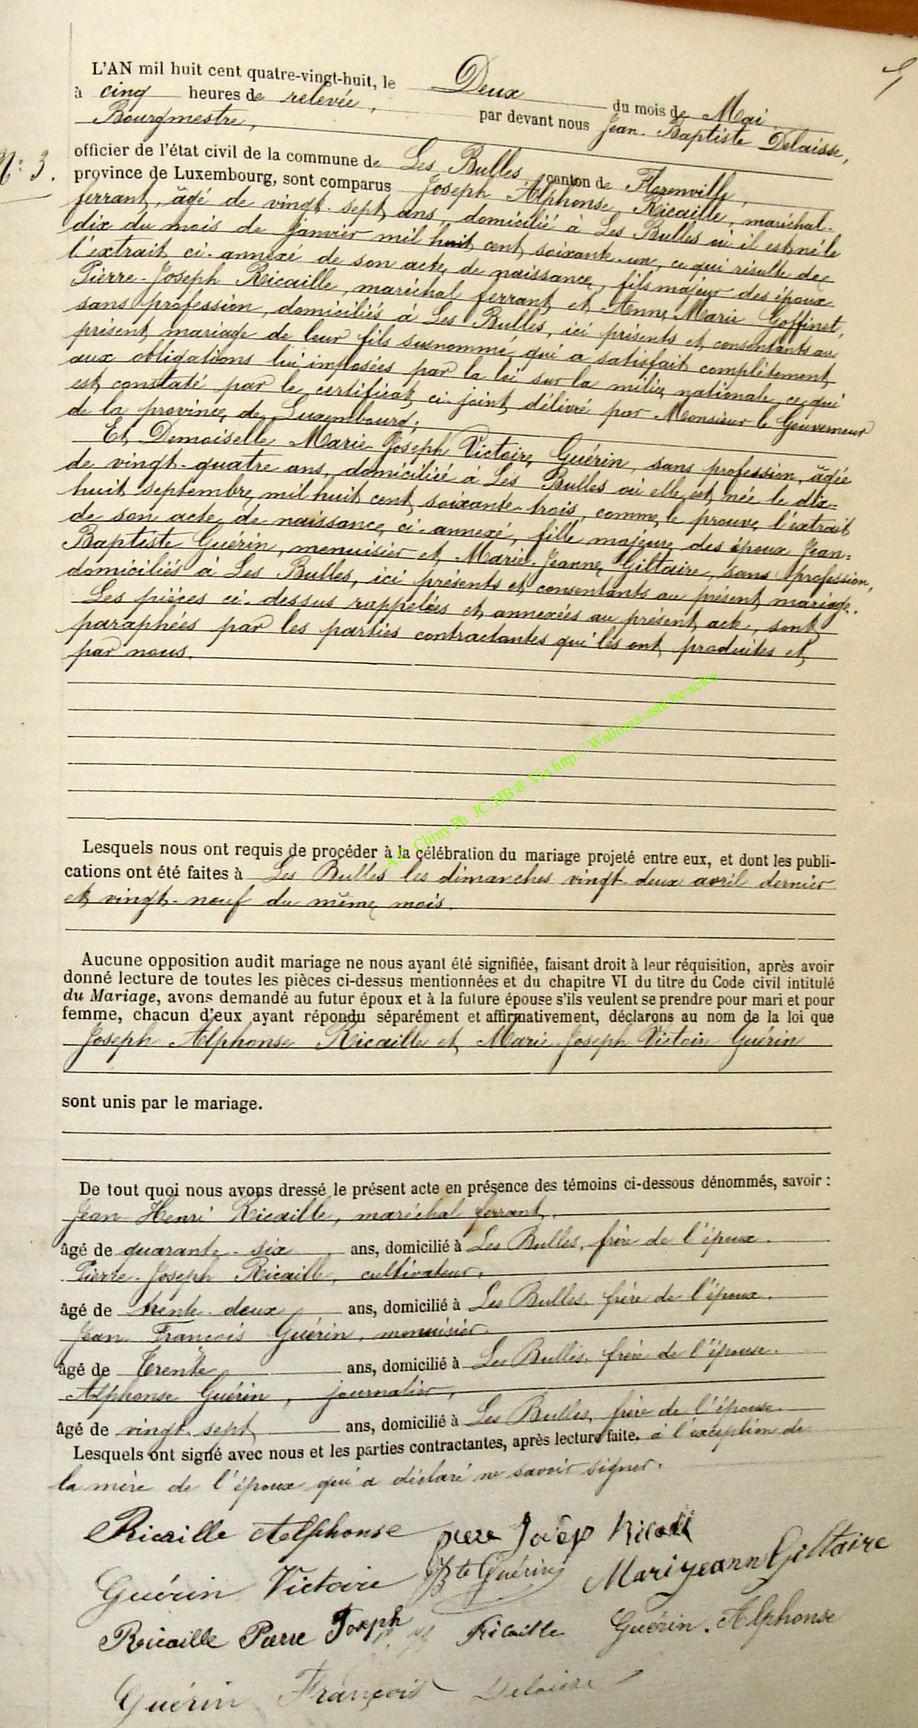 5
L'AN mil huit cent quatre-vingt-huit, le Deux du mois de Mai
à cinq heures de relevée, par devant nous Jean-Baptiste Delaisse,
Bourgmestre,
N° 3.
officier de l'état civil de la commune de Les Bulles, canton de Florenville,
province de Luxembourg, sont comparus Joseph Alphonse Ricaille, maréchal-
ferrant, âgé de vingt-sept ans, domicilié à Les Bulles où il est né le
dix du mois de Janvier mil huit cent soixante-un, ce qui résulte de
l'extrait ci-annexé de son acte de naissance, fils majeur des époux
Pierre-Joseph Ricaille, maréchal ferrant et Anne Marie Goffinet,
sans profession, domiciliés à Les Bulles, ici présents et consentants au
présent mariage de leur fils susnommé qui a satisfait complètement
aux obligations lui imposées par la loi sur la milice nationale, ce qui
est constaté par le certificat ci-joint délivré par Monsieur le Gouverneur
de la province de Luxembourg;
Et Demoiselle Marie-Joseph Victoire Guérin, sans profession, âgée
de vingt-quatre ans, domiciliée à Les Bulles où elle est née le dix-
huit septembre mil huit cent soixante-trois, comme le prouve l'extrait
de son acte de naissance ci-annexé, fille majeure des époux Jean-
Baptiste Guérin, menuisier et Marie Jeanne Giltaire, sans profession,
domiciliés à Les Bulles, ici présents et consentants au présent mariage.
Les pièces ci-dessus rappelées et annexées au présent acte, sont
paraphées par les parties contractantes qui les ont produites et
par nous.
A.E. Chiny Ph JC.HB.& Via http: Wallonia-asbl.be/actes
Lesquels nous ont requis de procéder à la célébration du mariage projeté entre eux, et dont les publi-
cations ont été faites à Les Bulles les dimanches vingt-deux avril dernier
et vingt-neuf du même mois.
Aucune opposition audit mariage ne nous ayant été signifiée, faisant droit à leur réquisition, après avoir
donné lecture de toutes les pièces ci-dessus mentionnées et du chapitre VI du titre du Code civil intitulé
du Mariage, avons demandé au futur époux et à la future épouse s'ils veulent se prendre pour mari et pour
femme, chacun d'eux ayant répondu séparément et affirmativement, déclarons au nom de la loi que
Joseph Alphonse Ricaille et Marie-Joseph Victoire Guérin
sont unis par le mariage.
De tout quoi nous avons dressé le présent acte en présence des témoins ci-dessous dénommés, savoir :
Jean-Henri Ricaille, maréchal ferrant,
âgé de quarante-six ans, domicilié à Les Bulles, frère de l'époux.
Pierre-Joseph Ricaille, cultivateur,
âgé de trente-deux ans, domicilié à Les Bulles, frère de l'époux.
Jean François Guérin, menuisier
âgé de Trente ans, domicilié à Les Bulles, frère de l'épouse.
Alphonse Guérin, journalier,
âgé de vingt-sept ans, domicilié à Les Bulles, frère de l'épouse.
Lesquels ont signé avec nous et les parties contractantes, après lecture faite. à l'exception de
la mère de l'époux qui a déclaré ne savoir signer.
Ricaille Alphonse piere Josep Ricaill
Guérin Victoire Jbte Guérin Marijeann Giltaire
Ricaille Pierre Joseph Ricaille Guérin Alphonse
Guérin François Delaisse